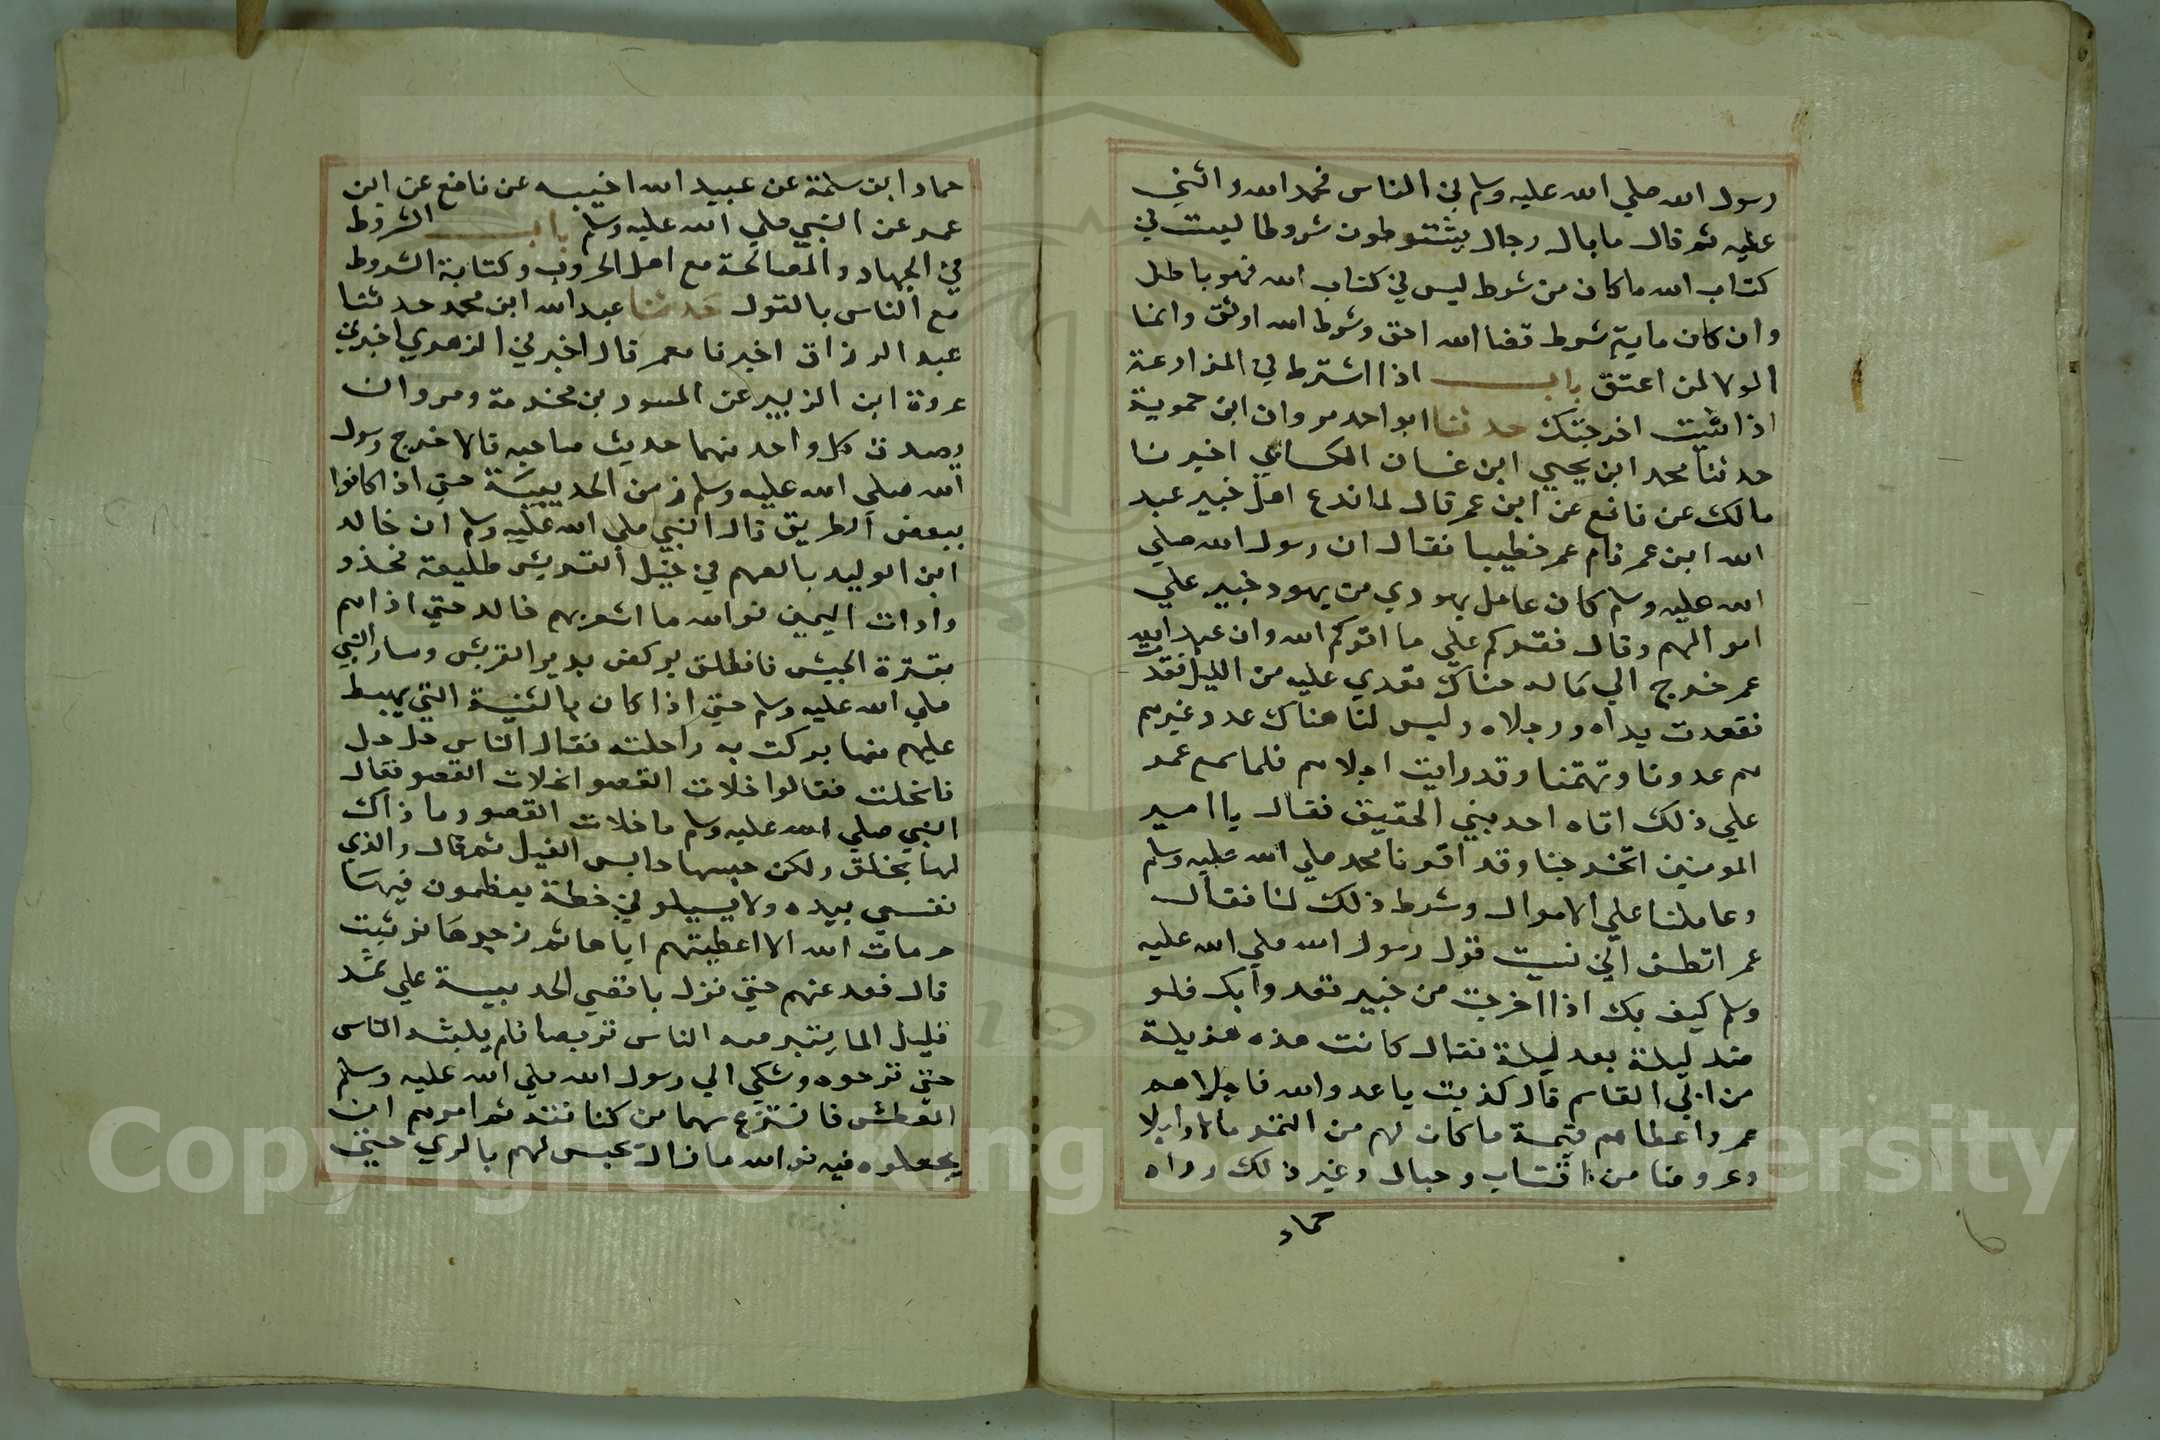 رسول الله صلي الله عليه وسلم في الناس فحمد الله واثني
عليه ثم قال ما بال رجال يشترطون شروطا ليست في
كتاب الله ما كان من شرط ليس في كتاب الله فهو باطل
وان كان ماية شرط قضا الله احق وشرط الله اوثق وانما
الولا لمن اعتق باب اذا اشترط في المزارعة
اذا شيت اخرجتك حدثنا ابو احمد مروان ابن حموية
حدثنا محمد ابن يحيي ابن غسان الكساني اخبرنا
مالك عن نافع عن ابن عمر قال لما اندع اهل خيبر عبد
الله ابن عمر قام عمر خطيبا فقال ان رسول الله صلي
الله عليه وسلم كان عامل يهودي من يهود خيبر علي
اموالهم وقال نقركم علي ما اقركم الله وان عبد الله
عمر خرج الي ماله هناك فعدي عليه من الليل
فقعدت يداه ورجلاه وليس لنا هناك عدو غيرهم
هم عدونا وتهمتنا وقد رايت اجلاهم فلما سمع عمر
علي ذلك اتاه احد بني الحقيق فقال يا امير
المومنين اتخرجنا وقد اقرنا محمد صلي الله عليه وسلم
وعاملنا علي الاموال وشرط ذلك لنا فقال
عمر اتظن اني نسيت قول رسول الله صلي الله عليه
وسلم كيف بك اذا اخرجت من خيبر تعدوا بك قلو
صد ليلة بعد ليلة فقال كانت هذه هزيلة
من ابي القاسم قال كذبت يا عدو الله فاجلاهم
عمر واعطاهم قيمة ما كان لهم من الثمر مالا وابلا
وعروضا من اقتاب وحبال وغير ذلك رواه
حماد
حماد ابن سلمة عن عبيد الله احسبه عن نافع عن ابن
عمر عن النبي صلي الله عليه وسلم باب الشروط
في الجهاد والمصالحة مع اهل الحروب وكتابة الشروط
مع الناس بالقول حدثنا عبد الله ابن محمد حدثنا
عبد الرزاق اخبرنا معمر قال اخبرني الزهدي اخبرني
عروة ابن الزبير عن المسور بن مخرمة ومروان
يصدق كل واحد منهما حديث صاحبه قالا خرج رسول
الله صلي الله عليه وسلم زمن الحديبية حتي اذا كانوا
ببعض الطريق قال النبي صلي الله عليه وسلم ان خالد
ابن الوليد بالغميم في خيل القريش طليعة فخذو
وا ذات اليمين فوالله ما اشعر بهم خالد حتي اذا هم
بقترة الجيش فانطلق يركض نديرا لقريش وسار النبي
صلي الله عليه وسلم حتي اذا كان بالثنية التي يهبط
عليهم منها بركت به راحلته فقال الناس حل حل
فالحلت فقالوا خلات القصوا خلات القصو فقال
النبي صلي الله عليه وسلم ما خلات القصو وما ذاك
لها بخلق ولكن حبسها حابس الفيل ثم قال والذي
نفسي بيده ولا يسيلو ني خطة يعظمون فيها
حرمات الله الا اعطيتهم اياها ثم زجرها فوثبت
قال فعد عنهم حتي نزل باقصي الحديبية علي ثمد
قليل الما يتبرضه الناس تربصا فلم يلبثه الناس
حتي نزحوه وشكي الي رسول الله صلي الله عليه وسلم
العطش فانتزع سهما من كنانته ثم امرهم ان
يجعلوه فيه فوالله ما زال تجيس لهم بالري حتي
Copyright © King Saud University